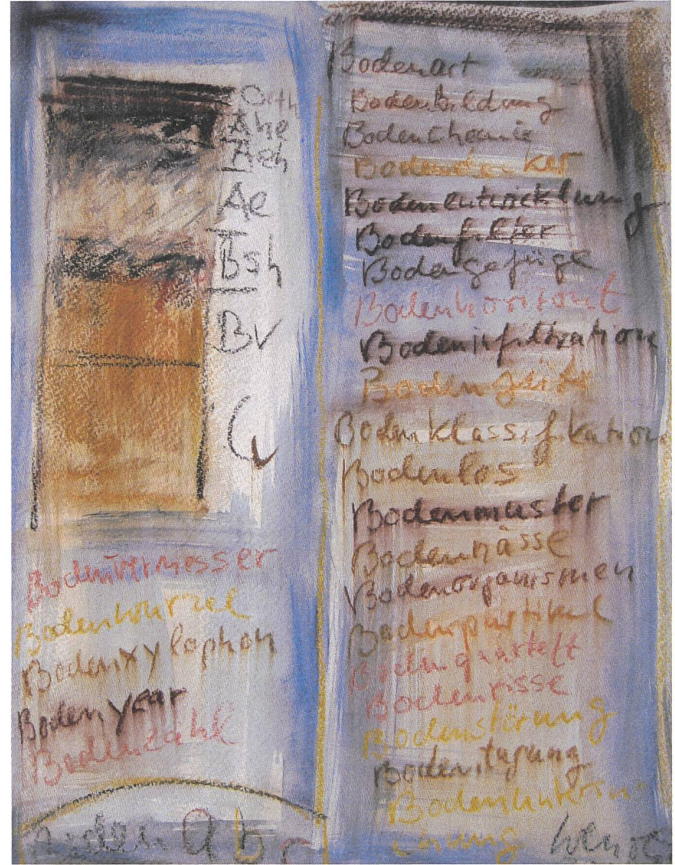 Orth
Ahe
Aeh
Ae
Bsh
Bv
Cv
Bodenvermesser
Bodenwurzel
Bodenxylophon
Bodenyear
Bodenzahl
Boden Abc
Bodenart
Bodenbildung
Bodenchemie
Bodendenker
Bodenentwicklung
Bodenfilter
Bodengefüge
Bodenhorizont
Bodeninfiltration
Bodenklassifikation
Bodenlos
Bodenmuster
Bodennässe
Bodenorganismen
Bodenpartikel
Bodenquartett
Bodenrisse
Bodenstörung
Bodentagung